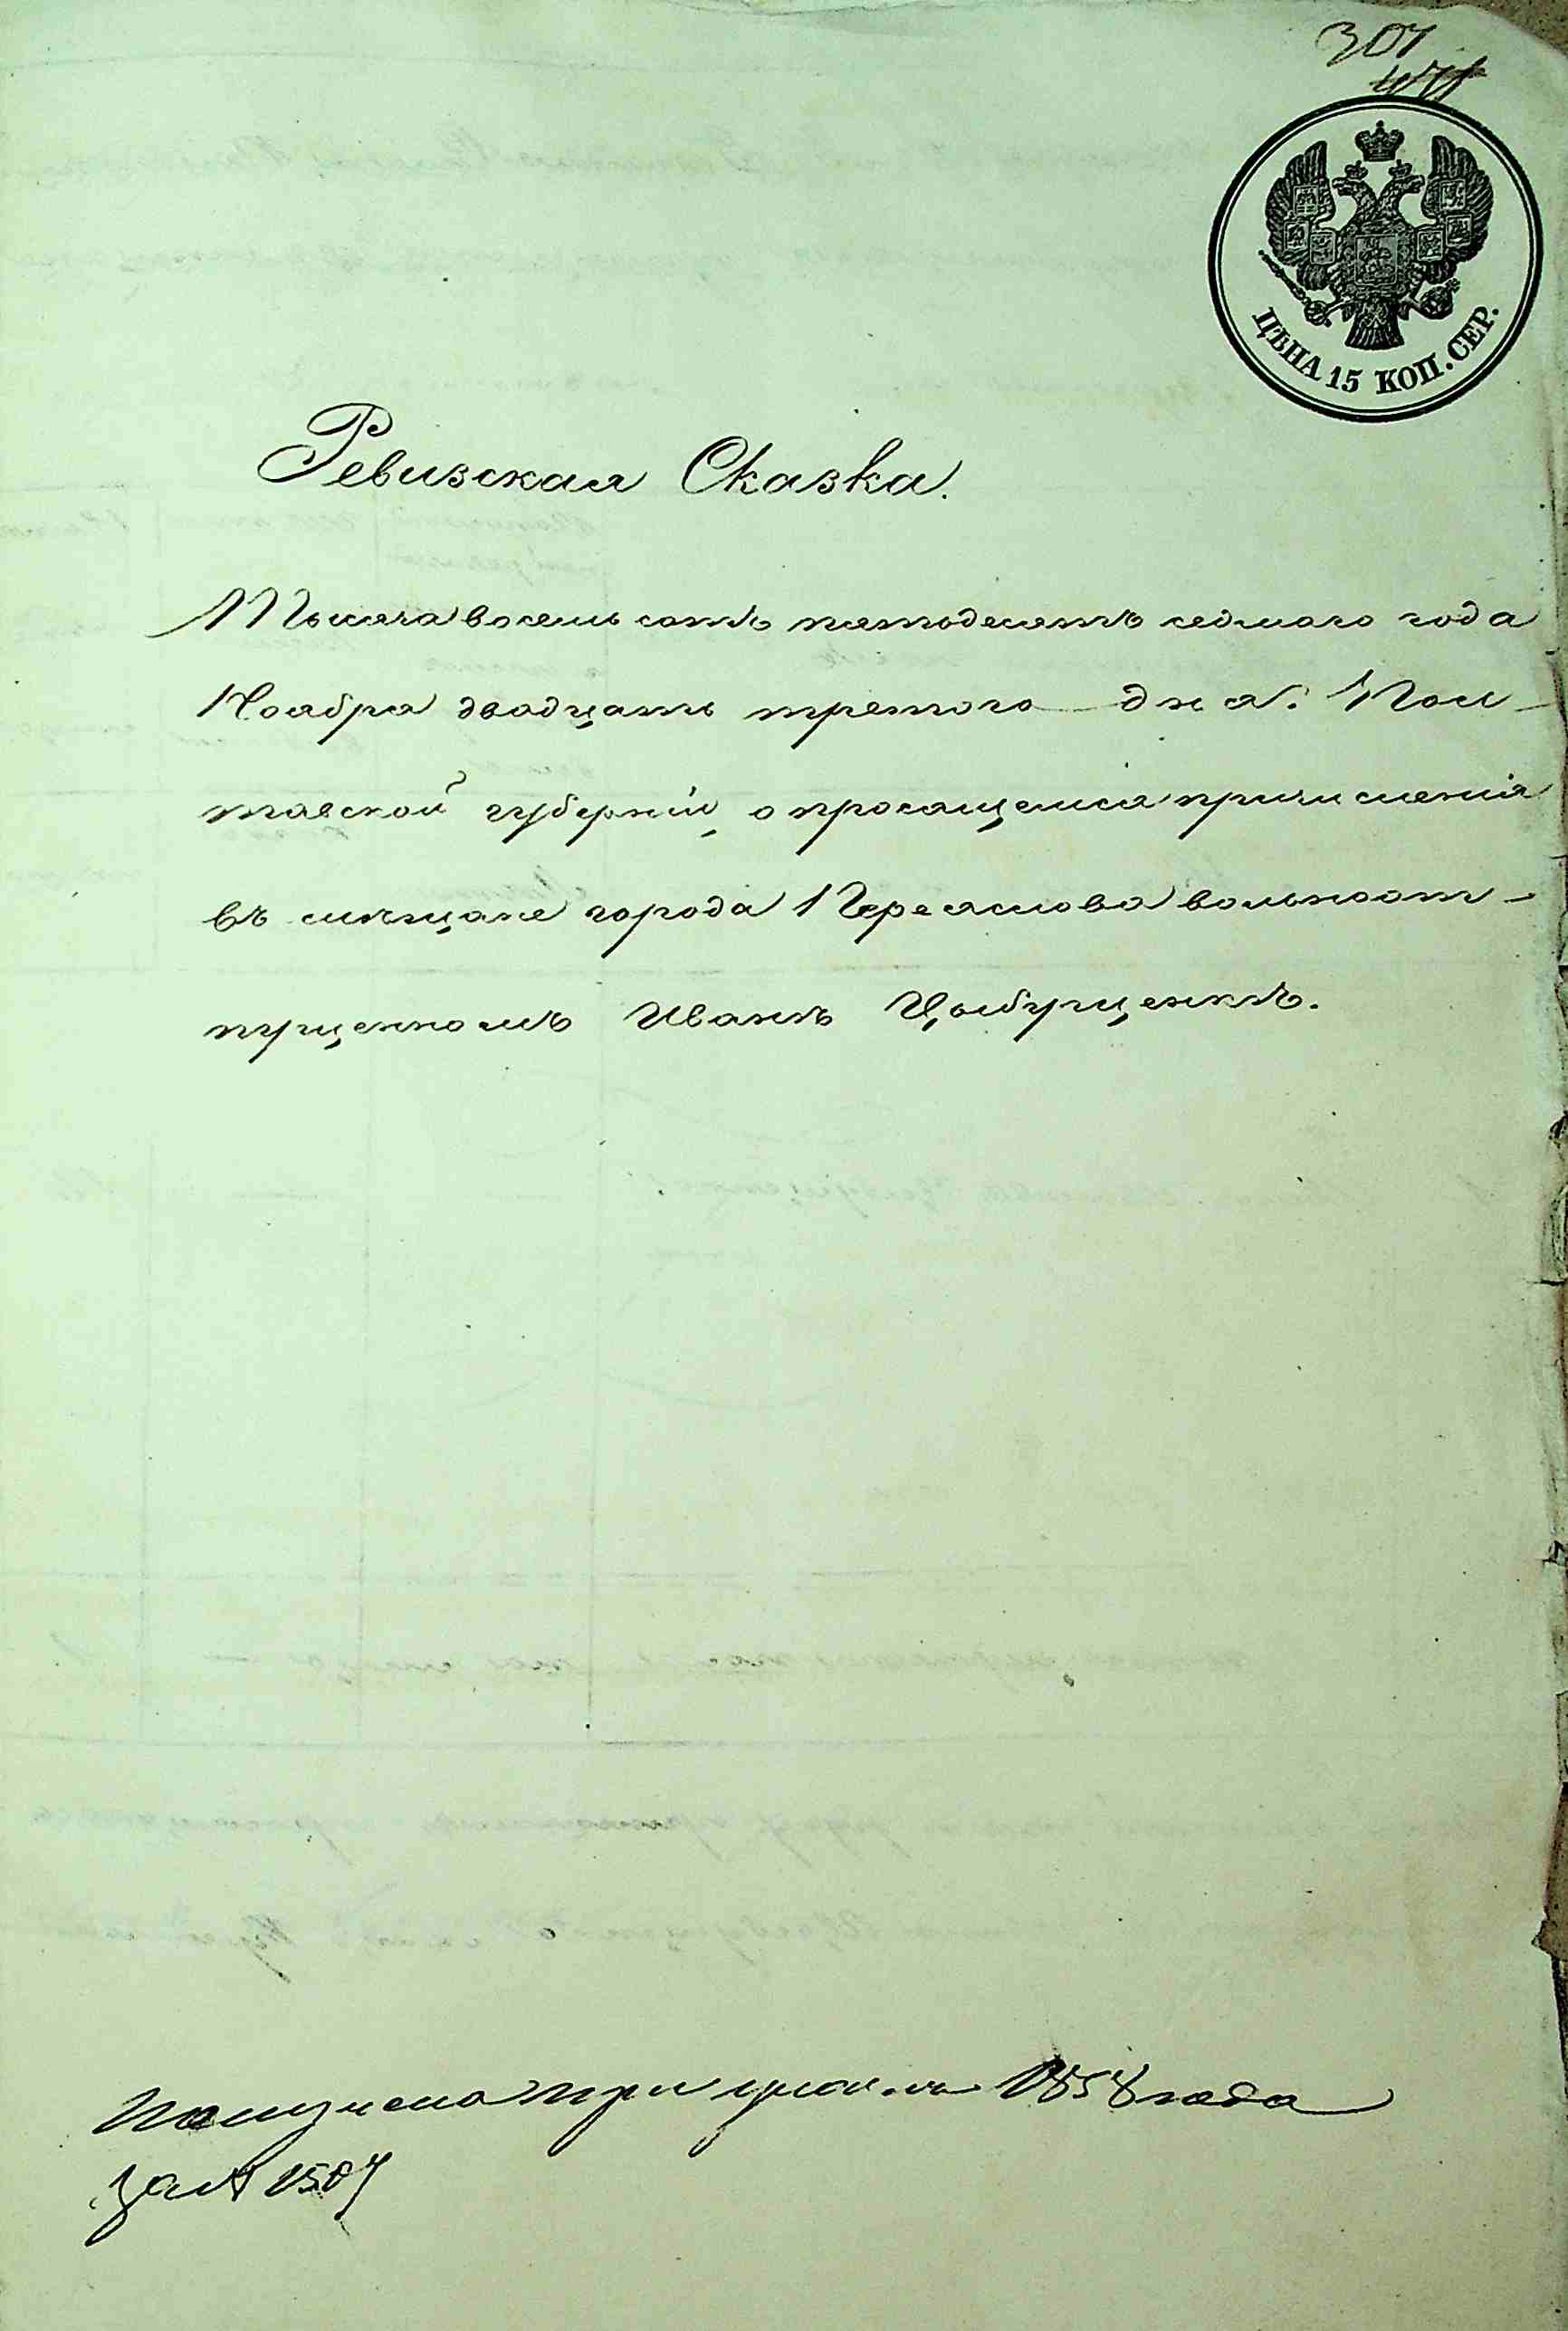 307
ЦѢНА 15 КОП. СЕР.
Ревизская Сказка.
Тысяча восемь сотъ пятодесятъ седмаго года
Ноября двадцать третого дня. Пол-
тавской губерніи, о просящемся причисленія
въ мѣщане города Переяслова вольноот-
пущенномъ Иванѣ Цыбущенкѣ.
Получена при 1858 года
за № 1507